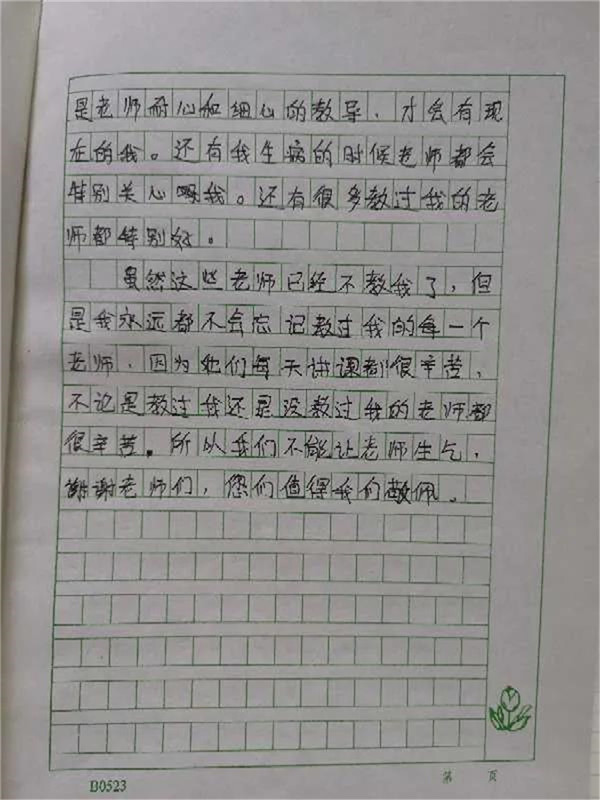 是老师耐心和细心的教导、才会有现
在的我。还有我生病的时候老师都会
特别关心我。还有很多教过我的老
师都特别好。
虽然这些老师已经不教我了，但
是我永远都不会忘记教过我的每一个
老师，因为她们每天讲课都很辛苦，
不论是教过我还是没教过我的老师都
很辛苦。所以我们不能让老师生气，
谢谢老师们，您们值得我们敬佩。
B0523
第 页